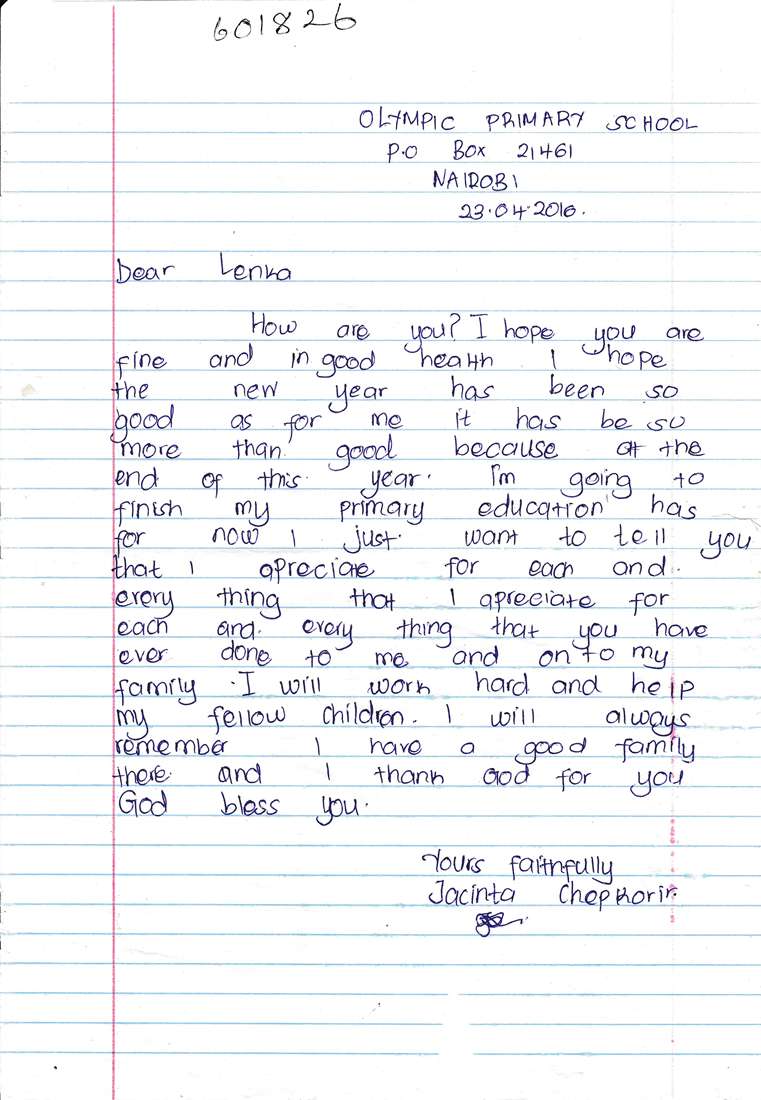 601826
OLYMPIC PRIMARY SCHOOL
P.O BOX 21461
NAIROBI
23.04.2016.
Dear Lenka
How are you? I hope you are
fine and in good health I hope
the new year has been so
good as for me it has be so
more than good because at the
end of this year. I'm going to
finish my primary education has
for now I just want to tell you
that I apreciate for each and.
every thing that I apreciate for
each and. every thing that you have
ever done to me and on to my
family. I will work hard and help
my fellow children. I will always
remember I have a good family
there and I thank God for you
God bless you.
Yours faithfully
Jacinta Chepkorir.